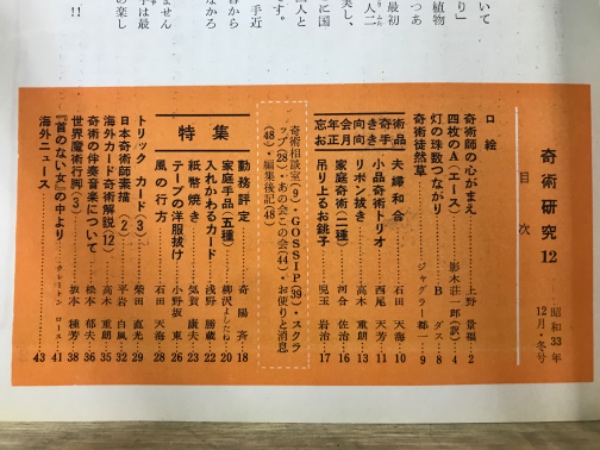 いて
り」
植物
つあ
最初
人二
美し、
に国
人と
す。
手近
容から
なかろ
ません
手は最
の楽し
!!
奇術研究 12
目次
昭和33年
12月・冬号
口絵
奇術師の心がまえ……上野 景福…2
四枚のA(エース)……影木荘一郎(訳)…4
灯の珠数つながり……B ダス…8
奇術徒然草……ジャグラー都一…9
忘年会向き奇術
お正月向き手品
夫婦和合……石田 天海…10
小品奇術トリオ……西尾 天芳…11
リボン抜き……高木 重朗…13
家庭奇術(二種)……河合 佐治…16
吊り上るお銚子……児玉 岩治…17
奇術相談室(9)・GOSSIP(39)・スクラ
ップ(28)・あの会この会(44)・お便りと消息
(48)・編集後記(48)
特集
勤務評定……奇 陽斉…18
家庭手品(五種)……柳沢よしたね…20
入れかわるカード……浅野 勝蔵…22
紙幣焼き……気賀 康夫…23
テープの洋服抜け……小野坂 東…26
風の行方……石田 天海…28
トリック カード(3)……柴田 直光…29
日本奇術師素描(2)……平岩 白風…32
海外カード奇術解説(12)……高木 重朗…35
奇術の伴奏音楽について……松本 郁夫…36
世界魔術行脚(3)……坂本 種芳…38
『首のない女』の中より……クレートン ロース…41
海外ニュース……43